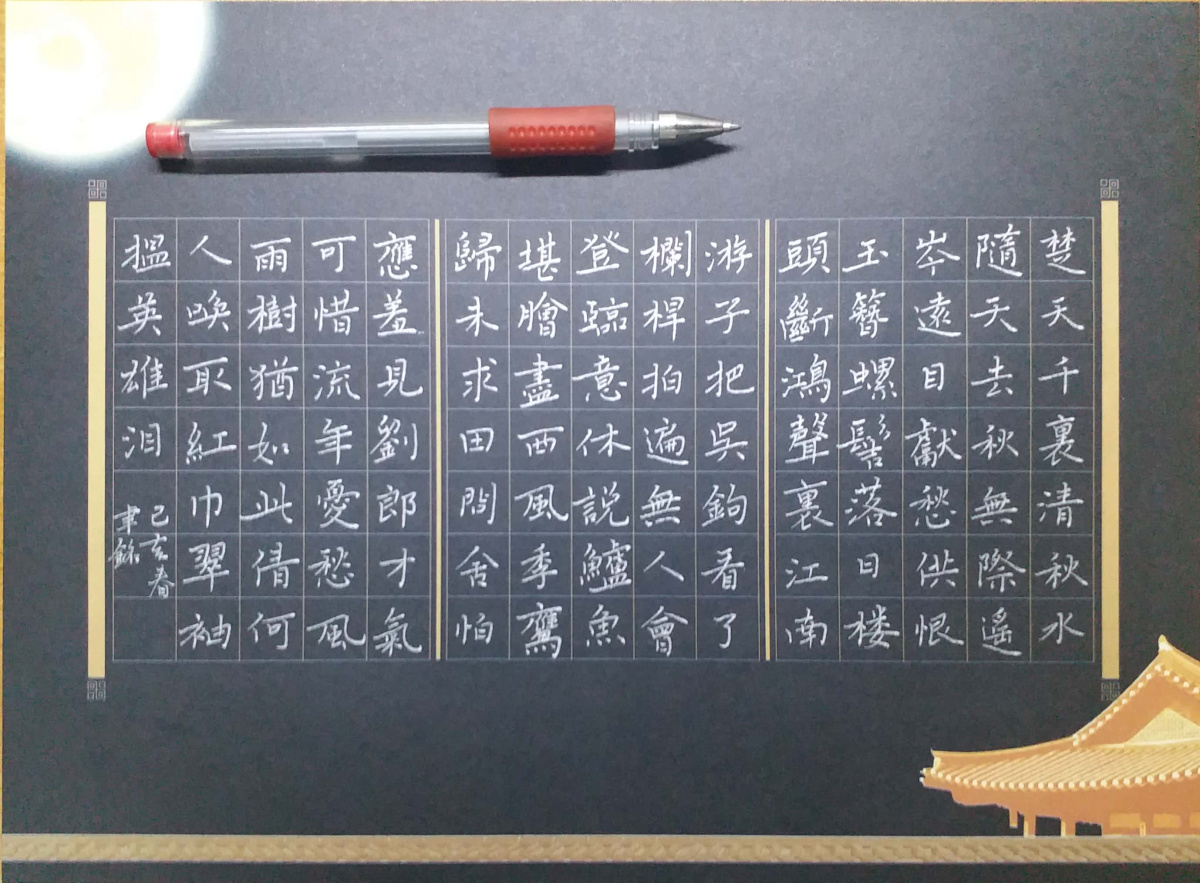 楚天千裏清秋水
隨天去秋無際遙
岑遠目獻愁供恨
玉簪螺髻落日楼
頭斷鴻聲裏江南
游子把吳鉤看了
欄桿拍遍無人會
登臨意休説鱸魚
堪膾盡西風季鷹
歸未求田問舍怕
應羞見劉郎才氣
可惜流年憂愁風
雨樹猶如此倩何
人喚取紅巾翠袖
揾英雄泪
己亥春
聿錄